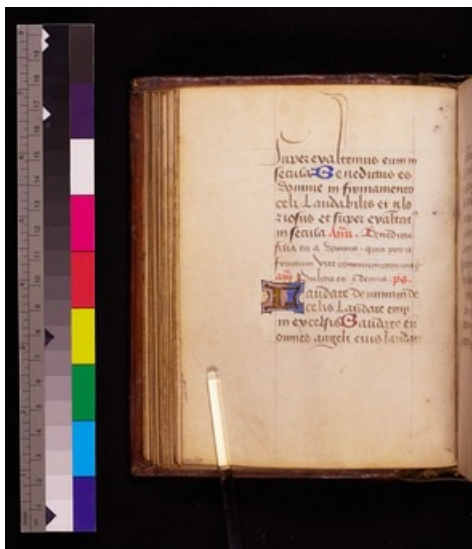 Superexaltemus eum in
secula Benedictus es
domine in firmamento
celi Laudabilis et glo
riosus et superexaltat
in secula Añ. Benedicta
filia tu a domino quia per te
fructum vite communicavimus
añ Pulcra es et decora ps.
Laudate dominum de
celis Laudate eum
in excelsis Laudate eū
omnes angeli eius laudate